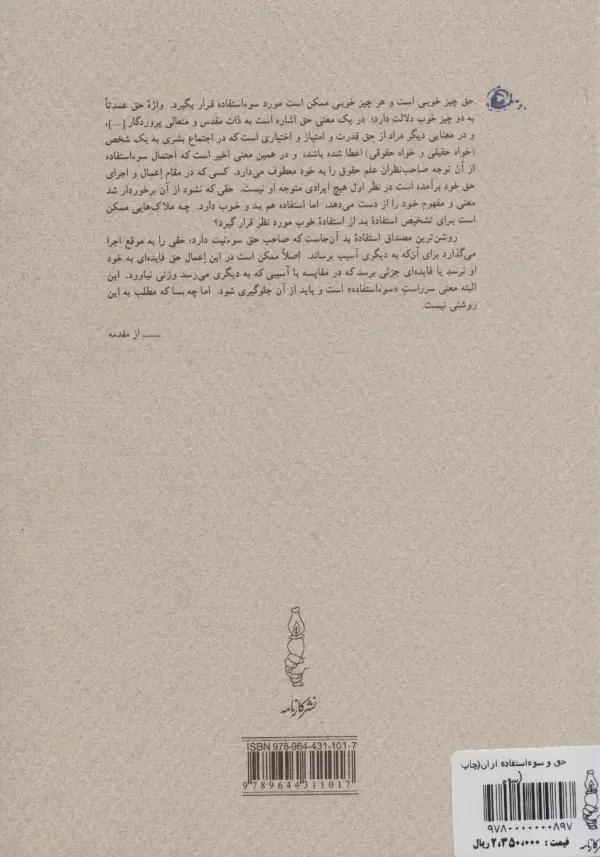 حق چیز خوبی است و هر چیز خوبی ممکن است مورد سوءاستفاده قرار بگیرد. واژهٔ حق عمدتاً
به دو چیز خوب دلالت دارد؛ در یک معنی حق اشاره است به ذات مقدس و متعالی پروردگار [...]،
و در معنایی دیگر مراد از حق قدرت و امتیاز و اختیاری است که در اجتماع بشری به یک شخص
(خواه حقیقی و خواه حقوقی) اعطا شده باشد، و در همین معنی اخیر است که احتمال سوءاستفاده
از آن توجه صاحب‌نظران علم حقوق را به خود معطوف می‌دارد. کسی که در مقام اِعمال و اجرای
حق خود برآمده است در نظر اول هیچ ایرادی متوجه او نیست. حقی که نشود از آن برخوردار شد
معنی و مفهوم خود را از دست می‌دهد، اما استفاده هم بد و خوب دارد. چه ملاک‌هایی ممکن
است برای تشخیص استفادهٔ بد از استفادهٔ خوب مورد نظر قرار گیرد؟
روشن‌ترین مصداق استفادهٔ بد آن‌جاست که صاحب حق سوءنیت دارد؛ حقی را به موقع اجرا
می‌گذارد برای آن‌که به دیگری آسیب برساند. اصلاً ممکن است در این اِعمال حق فایده‌ای به خود
او نرسد یا فایده‌ای جزئی برسد که در مقایسه با آسیبی که به دیگری می‌رسد وزنی نیاورد. این
البته معنی سرراستِ «سوءاستفاده» است و باید از آن جلوگیری شود. اما چه بسا که مطلب به این
روشنی نیست.
از مقدمه
نشر کارنامه
ISBN 978-964-431-101-7
9 789644 311017
حق و سوءاستفاده ازآن(چاپ
۹۷۸۰۰۰۰۰۰۰۸۹۷
قیمت: ۲،۳۵۰،۰۰۰ ریال
کارنامه